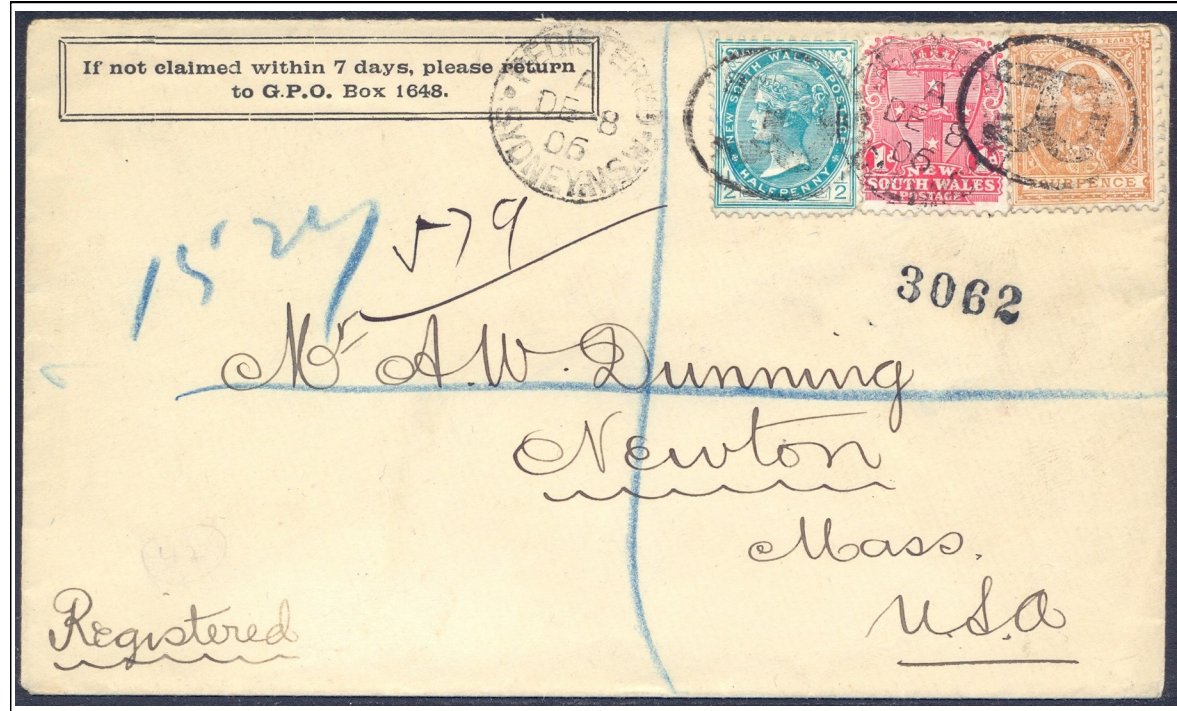 If not claimed within 7 days, please return
to G.P.O. Box 1648.
REGISTERED
SYDNEY N.S.W
A
DE 8
06
NEW SOUTH WALES POSTAGE
HALFPENNY
1/2 1/2
1d 1d
NEW
SOUTH WALES
POSTAGE
A
DE 8
06
PENCE
1524
579
3062
Mr A. W. Dunning
Newton
Mass.
U.S.A
Registered